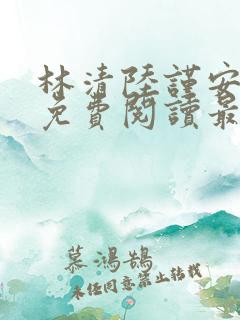 林清陸謹安
免費閱讀最
慕鴻鵠
未任同意禁止轉載